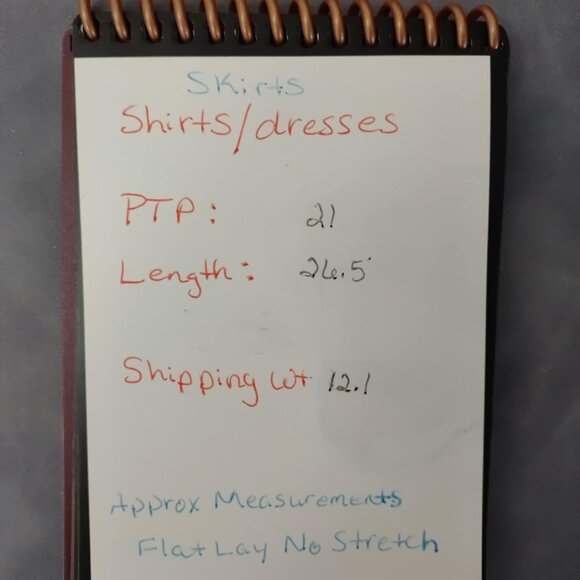 Skirts
Shirts/dresses
PTP: 21
Length: 26.5
Shipping Wt 12.1
Approx Measurements
Flat Lay No Stretch